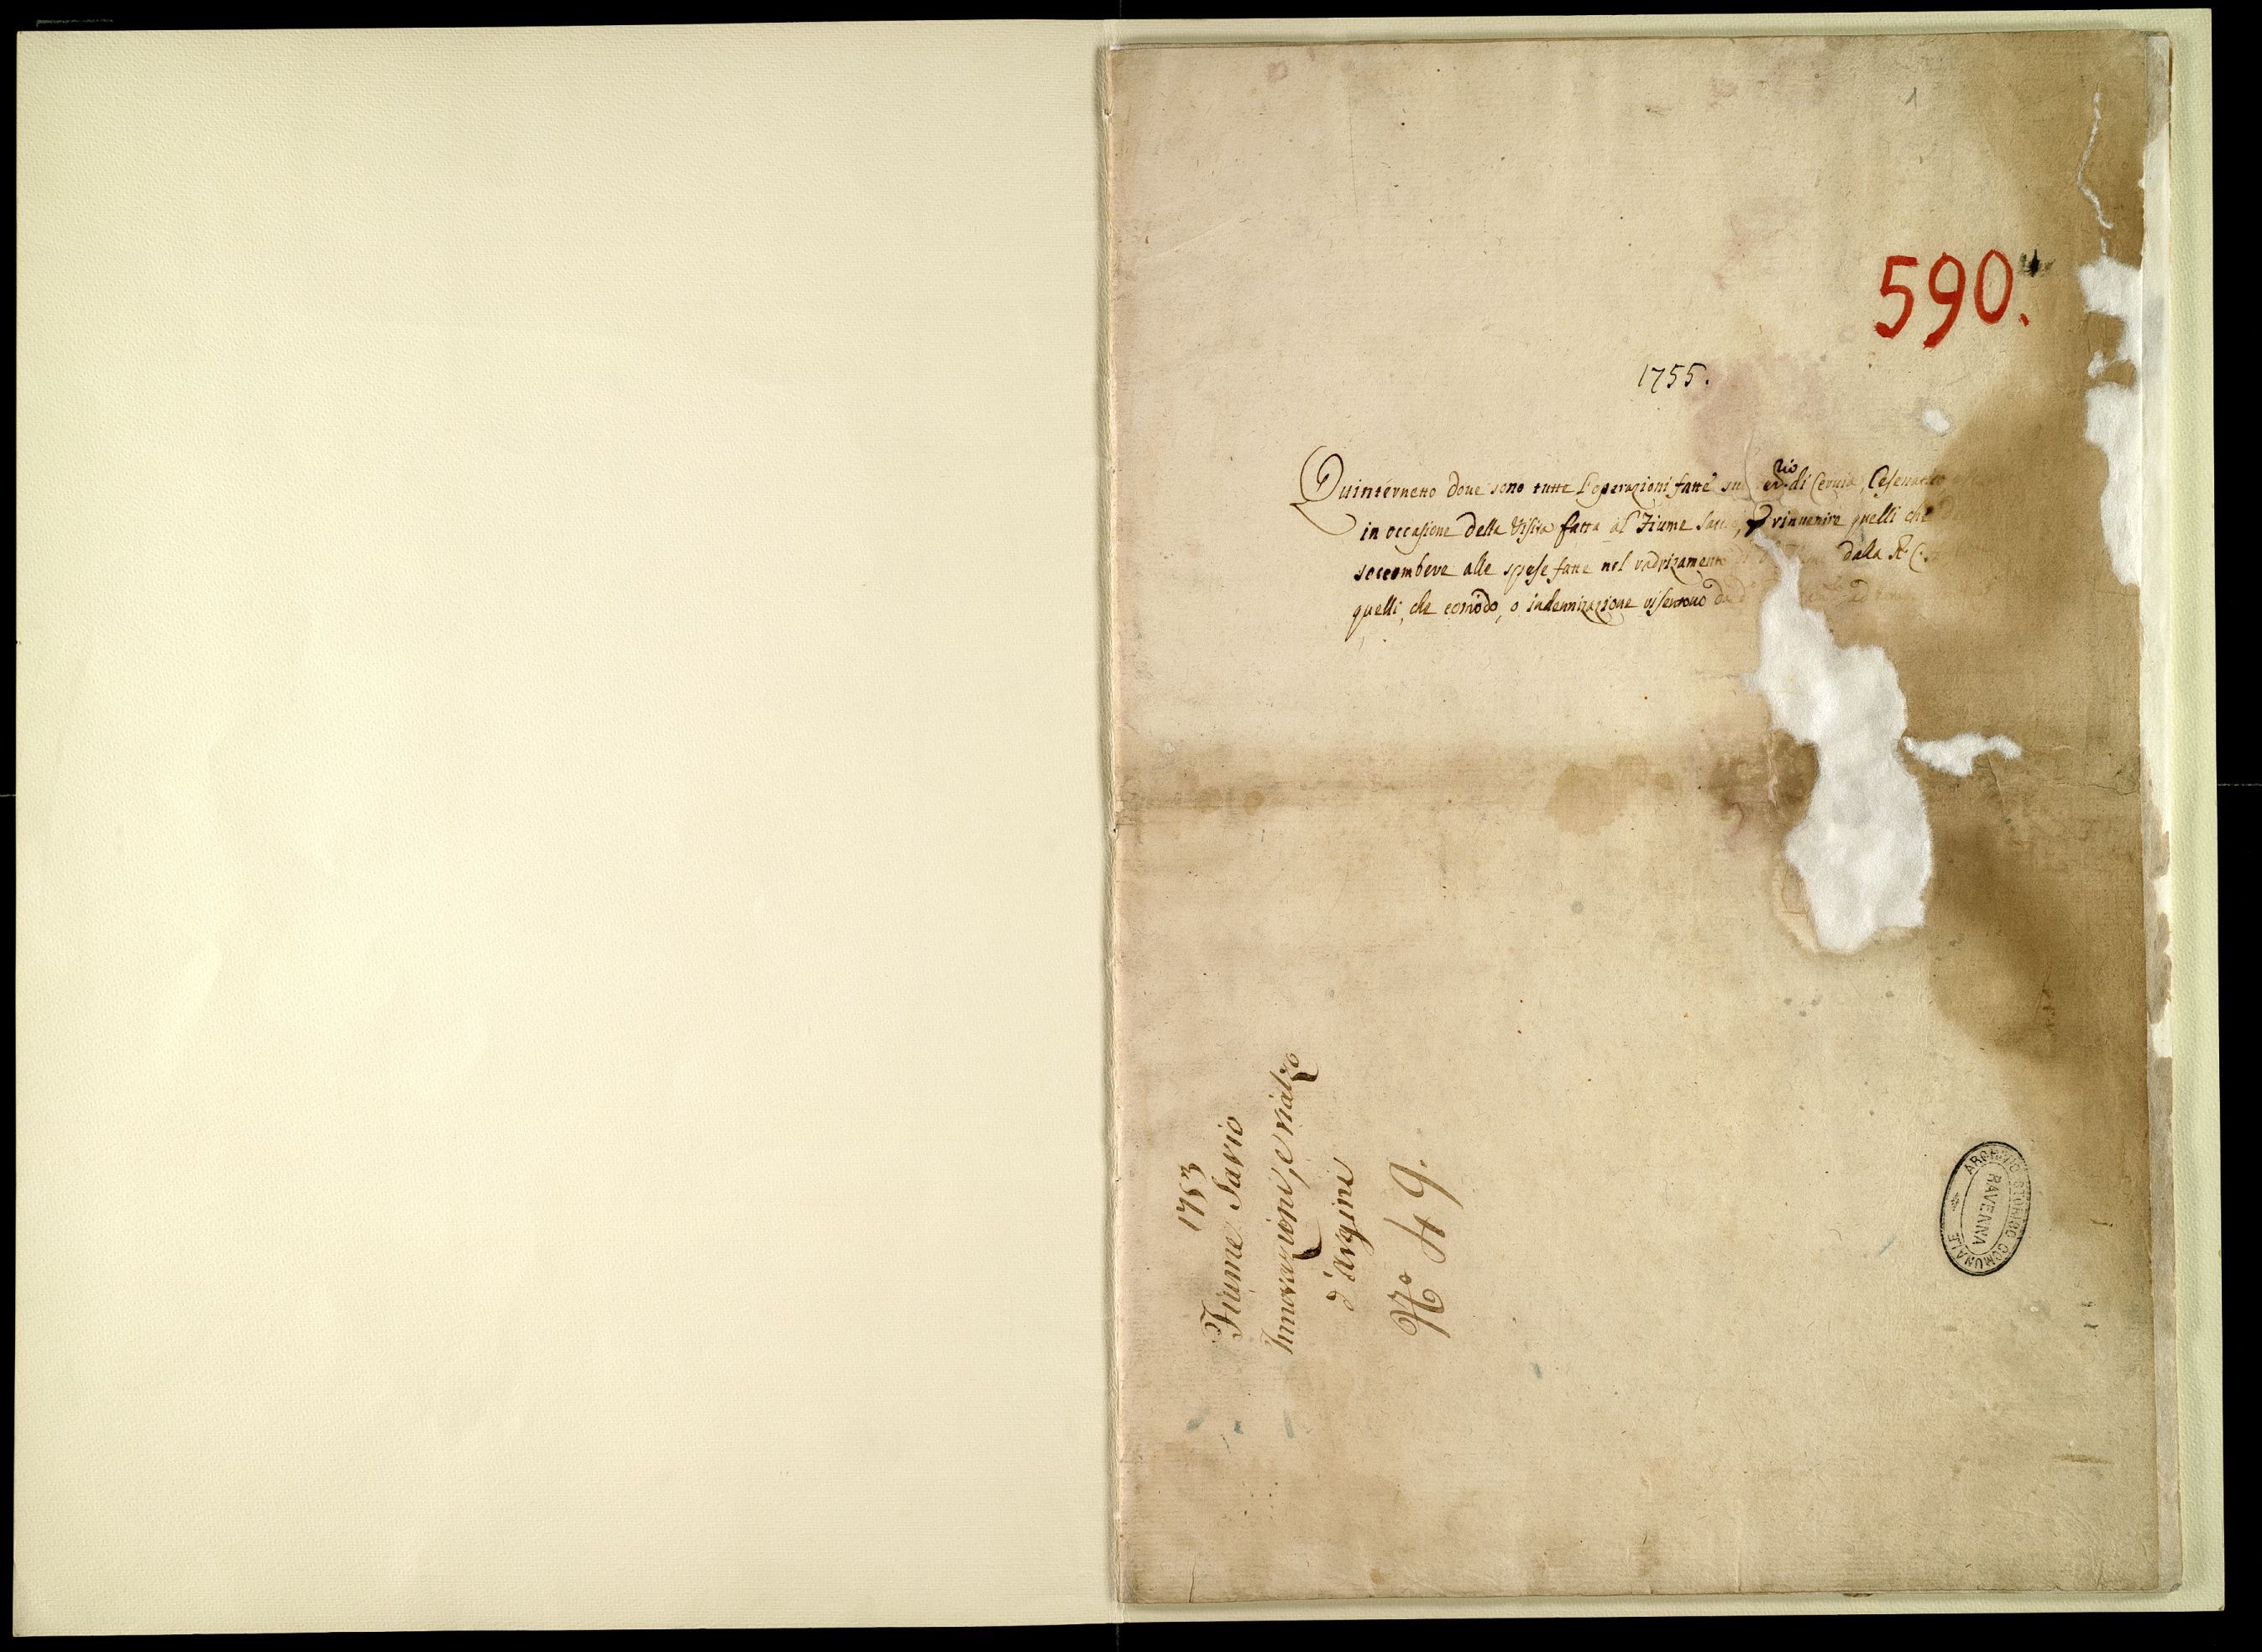 1
590.
1755.
Quinternetto dove sono tutte l'operazioni fatte di Cervia, Cesenatico
in occasione della Visita fatta al Fiume rinvenire quelli che
soccombere alle spese fatte nel radrizamento dalla R. C.
quelli, che comodo, o indennizazione risentono da
1753
Fiume Savio
Innovazioni, e rialzo
d'Argini
No 49.
ARCHIVIO STORICO COMUNALE
RAVENNA